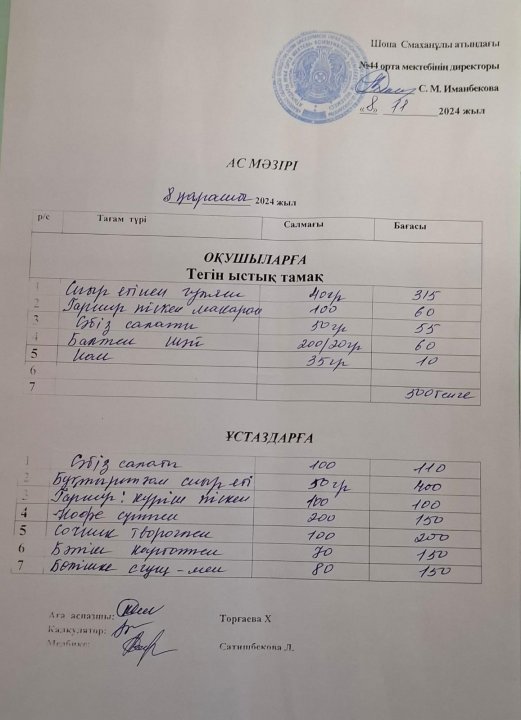 Шона Смаханұлы атындағы
№44 орта мектебінің директоры
С. М. Иманбекова
«8» 11 2024 жыл
АС МӘЗІРІ
8 қараша 2024 жыл
р/с Тағам түрі Салмағы Бағасы
ОҚУШЫЛАРҒА
Тегін ыстық тамақ
1 Сиыр етінен гуляш 40гр 315
2 Гарнир піскен макарон 100 60
3 Сәбіз салаты 50гр 55
4 Балмен шәй 200/20гр 60
5 Нан 35гр 10
6
7 500 теңге
ҰСТАЗДАРҒА
1 Сәбіз салаты 100 110
2 Бұқтырылған сиыр еті 50гр 400
3 Гарнир: күріш піскен 100 100
4 Кофе сүтпен 200 150
5 Сочник творогпен 100 200
6 Бәтіш картоппен 70 150
7 Бөтішке сгущ-мен 80 150
Аға аспазшы: Торғаева Х
Калкулятор:
Медбике: Сатишбекова Л.